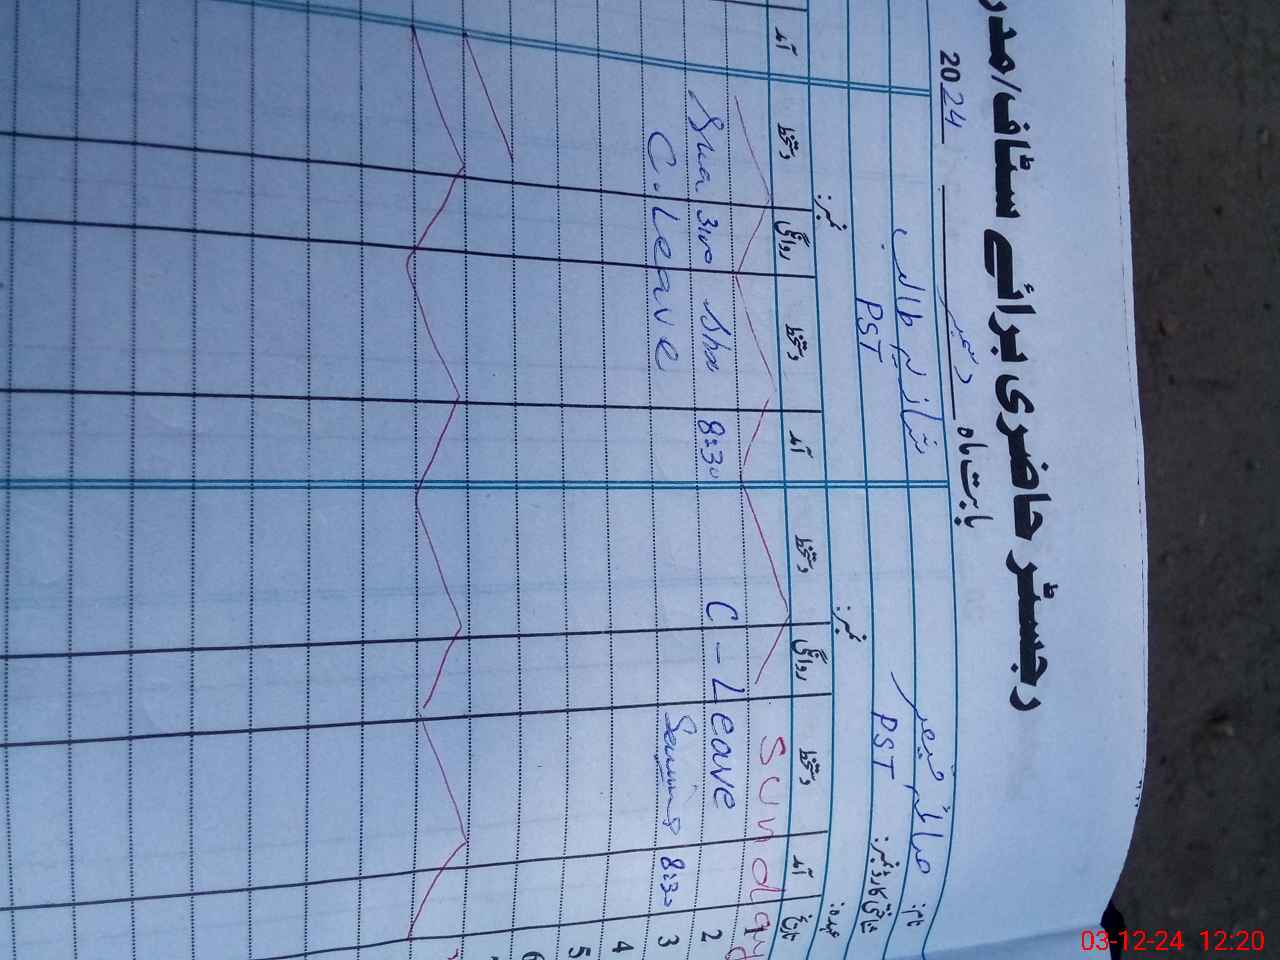 رجسٹر حاضری برائے سٹاف/صدر
بابت ماہ دسمبر 2024
نام: صائمہ قیصر
شازیہ طالب
شناختی کارڈ نمبر:
PST
PST
عہدہ: نمبر: نمبر:
تاریخ آمد دستخط روانگی دستخط آمد دستخط روانگی دستخط آمد
1 Sunday
2 C-Leave 8:30 Sha 3:00 Sha
3 8:30 C.Leave
4
5
6
03-12-24 12:20